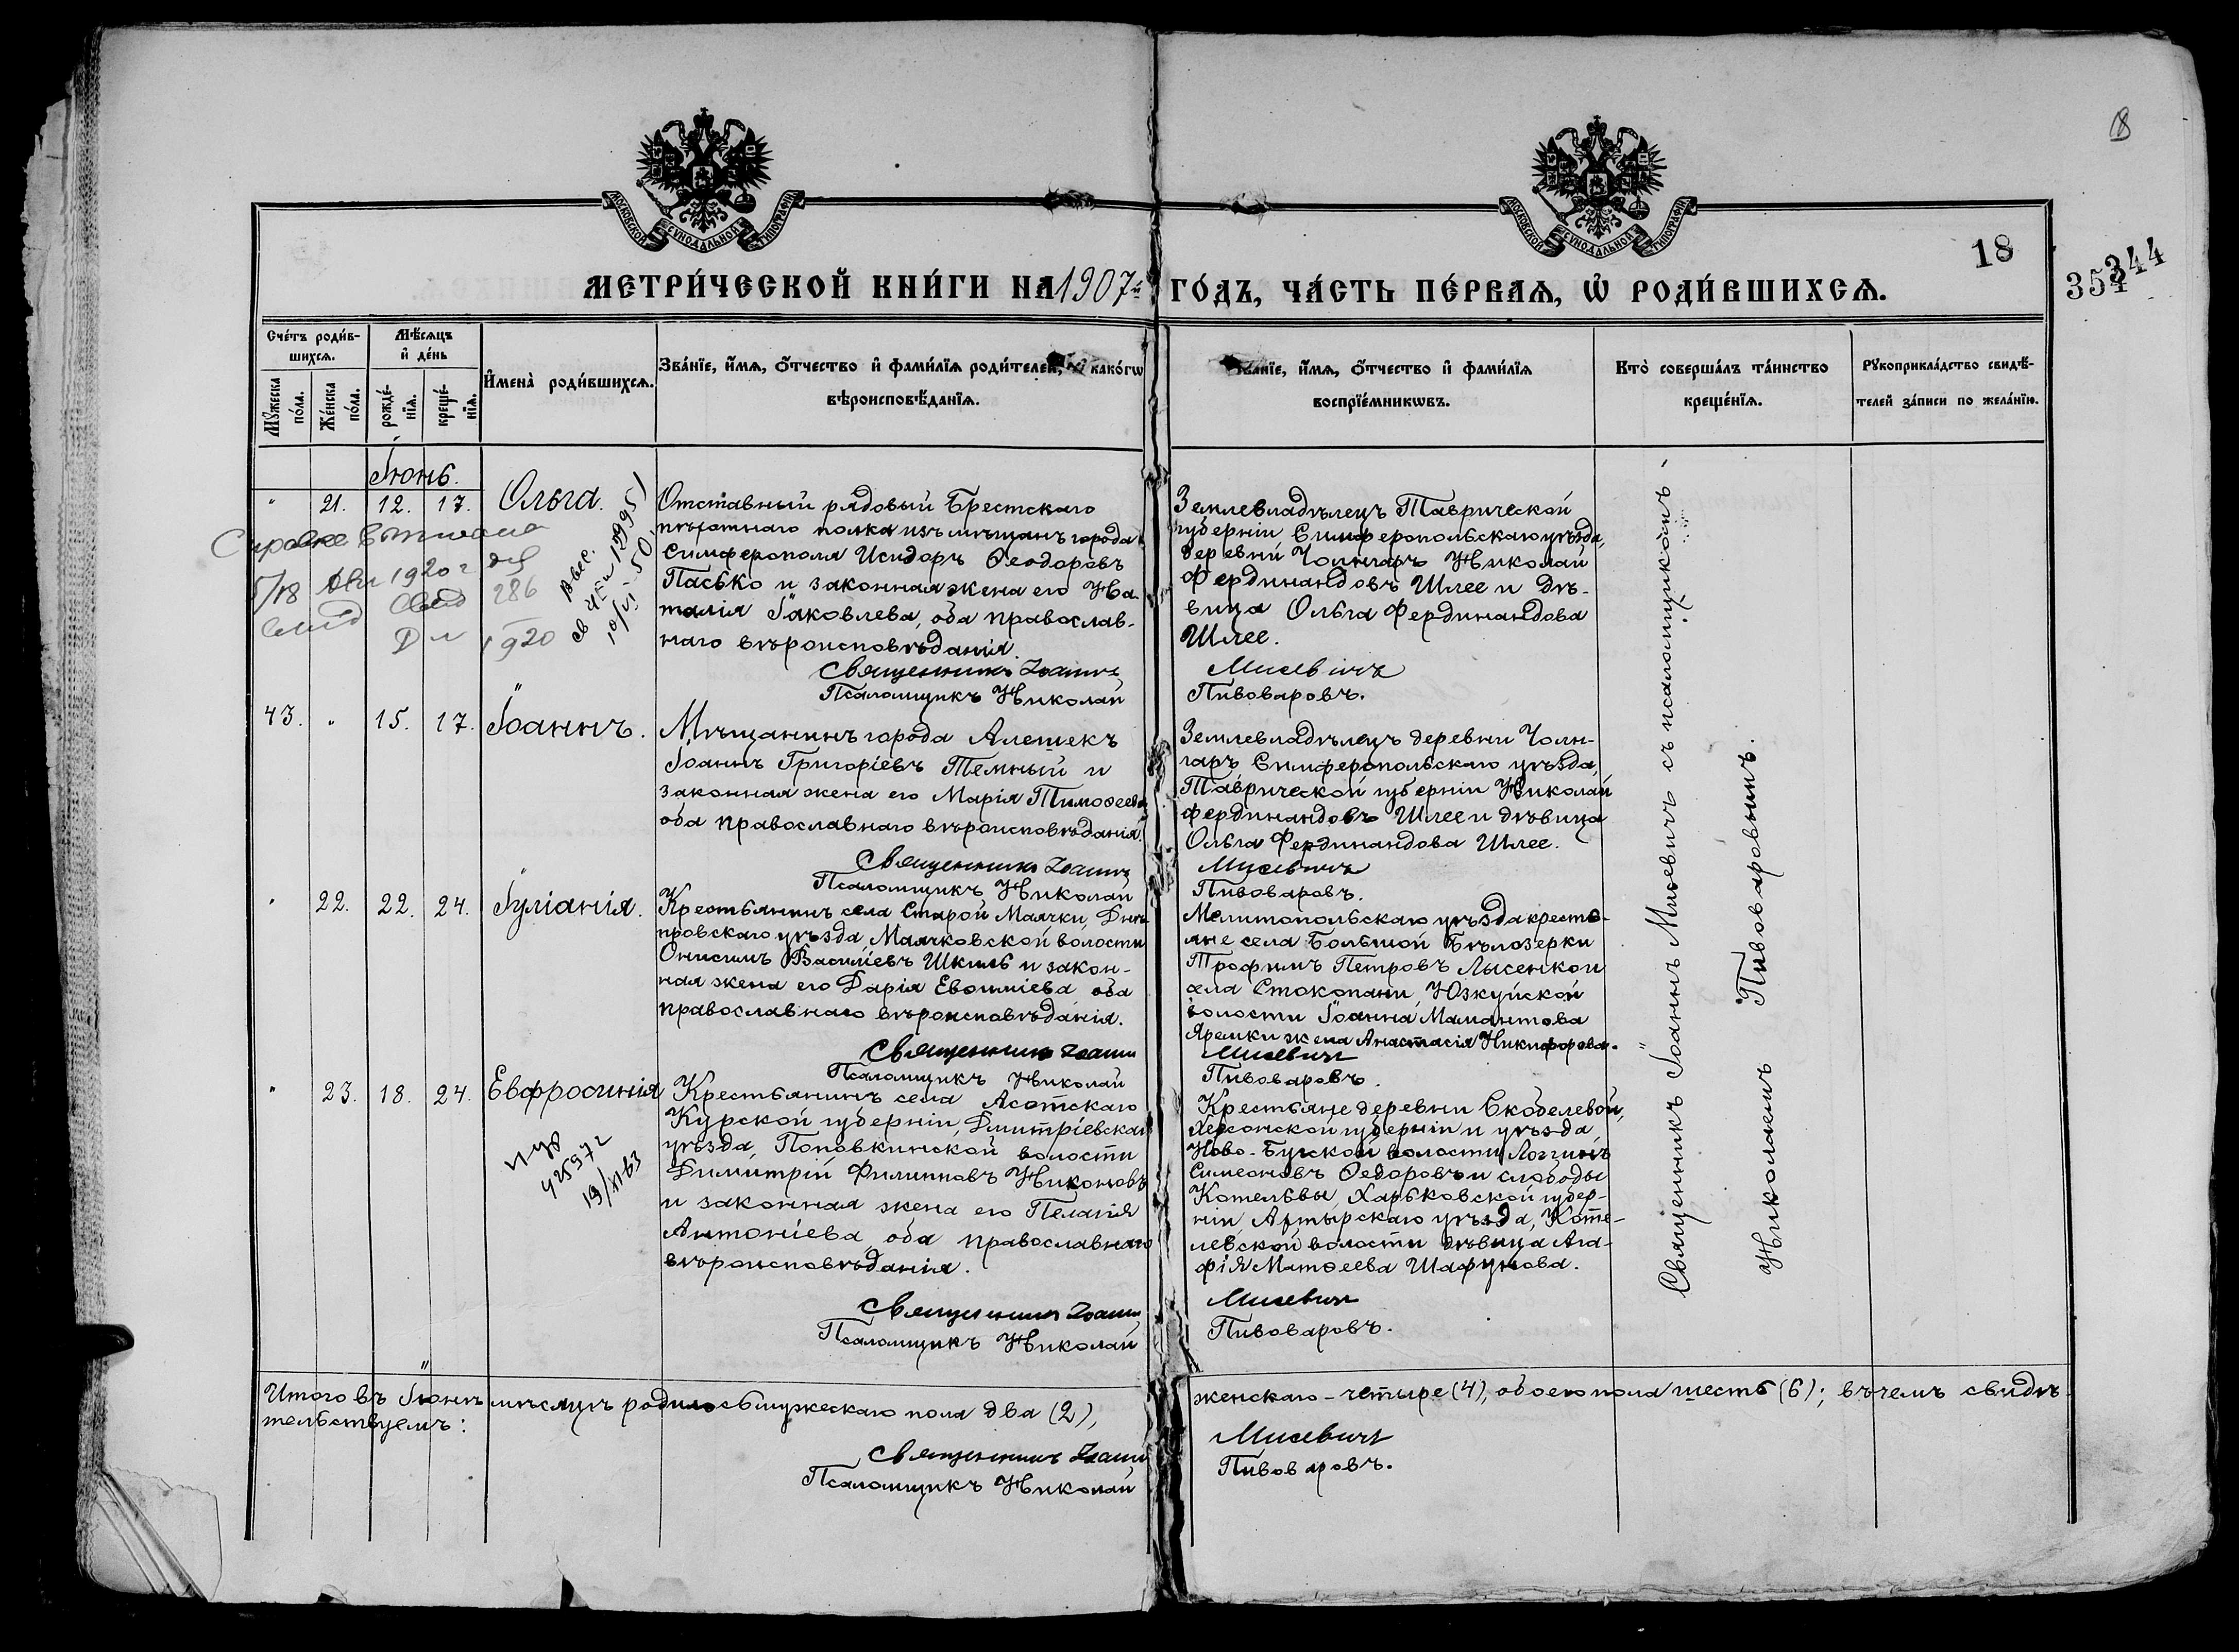 МОСКОВСКОЙ СѴНОДАЛЬНОЙ ТИПОГРАФІИ
МОСКОВСКОЙ СѴНОДАЛЬНОЙ ТИПОГРАФІИ
18
344
354
МЕТРИ́ЧЕСКОЙ КНИ́ГИ НА 1907й ГО́ДЪ, ЧА́СТЬ ПЕ́РВАѦ, Ѡ҆ РОДИ́ВШИХСѦ.
Сче́тъ роди́вшихсѧ.
Мѣ́сѧцъ и҆ де́нь
Мꙋ́жеска по́ла.
Же́нска по́ла.
рожде́нїѧ.
креще́нїѧ.
И҆мена̀ роди́вшихсѧ.
Зва́нїе, и҆́мѧ, ѻ҆́тчество и҆ фами́лїѧ роди́телей, и҆ како́гѡ
вѣроисповѣ́данїѧ.
Зва́нїе, и҆́мѧ, ѻ҆́тчество и҆ фами́лїѧ
воспрїе́мникѡвъ.
Кто̀ соверша́лъ та́инство
креще́нїѧ.
Рꙋкоприкла́дство свидѣ́-
телей за́писи по жела́нїю.
Іюнь.
" 21. 12. 17. Ольга.
Отставный рядовый Брестскаго
пѣхотнаго полка изъ мѣщанъ города
Симферополя Исидоръ Ѳеодоровъ
Пасько и законная жена его На-
талія Іаковлева, оба православ-
наго вѣроисповѣданія.
Священникъ Іоаннъ
Псаломщикъ Николай
Землевладѣлецъ Таврической
губерніи Симферопольскаго уѣзда,
деревни Чонгаръ Николай
Фердинандовъ Шлее и дѣ-
вица Ольга Фердинандова
Шлее.
Мисевичъ
Пивоваровъ.
1920 г
286
1920
43. " 15. 17. Іоаннъ.
Мѣщанинъ города Алешекъ
Іоаннъ Григоріевъ Темный и
законная жена его Марія Тимоѳеева
оба православнаго вѣроисповѣданія.
Священникъ Іоаннъ
Псаломщикъ Николай
Землевладѣлецъ деревни Чон-
гаръ Симферопольскаго уѣзда,
Таврической губерніи Николай
Фердинандовъ Шлее и дѣвица
Ольга Фердинандова Шлее.
Мисевичъ
Пивоваровъ.
" 22. 22. 24. Іуліанія.
Крестьянинъ села Старой Маячки, Днѣ-
провскаго уѣзда, Маячковской волости
Онисимъ Василіевъ Шкиль и закон-
ная жена его Дарія Евѳиміева оба
православнаго вѣроисповѣданія.
Священникъ Іоаннъ
Псаломщикъ Николай
Мелитопольскаго уѣзда кресть-
яне села Большой Бѣлозерки
Трофимъ Петровъ Лысенко и
села Стокопани, Юзкуйской
волости Іоанна Мамантова
Яремки жена Анастасія Никифорова.
Мисевичъ
Пивоваровъ.
" 23. 18. 24. Евфросинія
Крестьянинъ села Асотскаго
Курской губерніи, Дмитріевскаго
уѣзда, Поповкинской волости
Димитрій Филипповъ Никоновъ
и законная жена его Пелагія
Антоніева, оба православнаго
вѣроисповѣданія.
Священникъ Іоаннъ
Псаломщикъ Николай
Крестьяне деревни Скобелевой,
Херсонской губерніи и уѣзда
Ново-Бугской волости Логгинъ
Симеоновъ Ѳедоровъ и слободы
Котельвы, Харьковской губер-
ніи Ахтырскаго уѣзда, Коте-
левской волости дѣвица Ага-
фія Матѳеева Шафунова.
Мисевичъ
Пивоваровъ.
Священникъ Іоаннъ Мисевичъ съ псаломщикомъ
Николаемъ Пивоваровымъ.
Итого въ Іюнѣ мѣсяцѣ родилось мужескаго пола два (2), женскаго - четыре (4), обоего пола шесть (6); въ чемъ свидѣ-
тельствуемъ:
Священникъ Іоаннъ Мисевичъ
Псаломщикъ Николай Пивоваровъ.